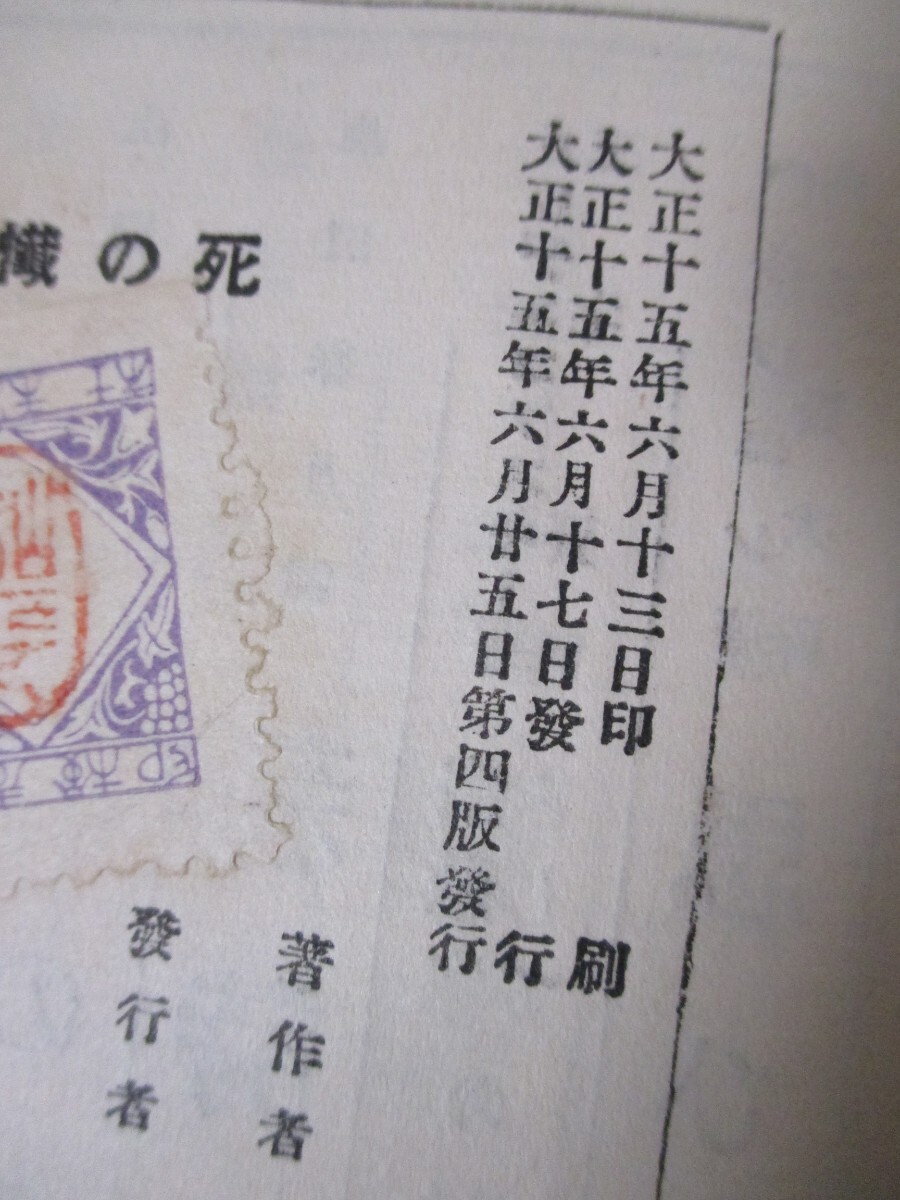 大正十五年六月十三日印刷
大正十五年六月十七日發行
大正十五年六月廿五日第四版發行
死の懺
著作者
發行者